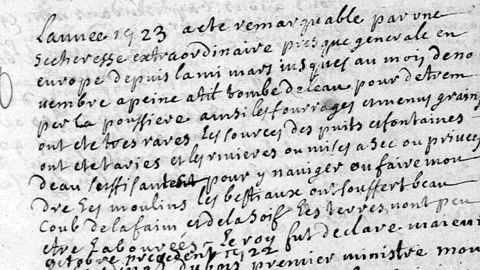 Lannee 1723 a ete remarquable par une
secheresse extraordinaire presque generale en
europe depuis la mi mars jusques au mois de no
vembre a peine a til tombe de leau pour detrem
per la poussiere ainsi les fourrages et menus grains
ont ete tres rares les sources des puits et fontaines
ont ete taries et les rivieres ou mises a sec ou privees
deau suffisantent pour y naviger ou faire mou
dre les moulins les bestiaux ont souffert beau
coub de la faim et de la soif les terres nont peu
etre labourees Le roy fut declare majeur
octobre precedent 1722
premier ministre mou